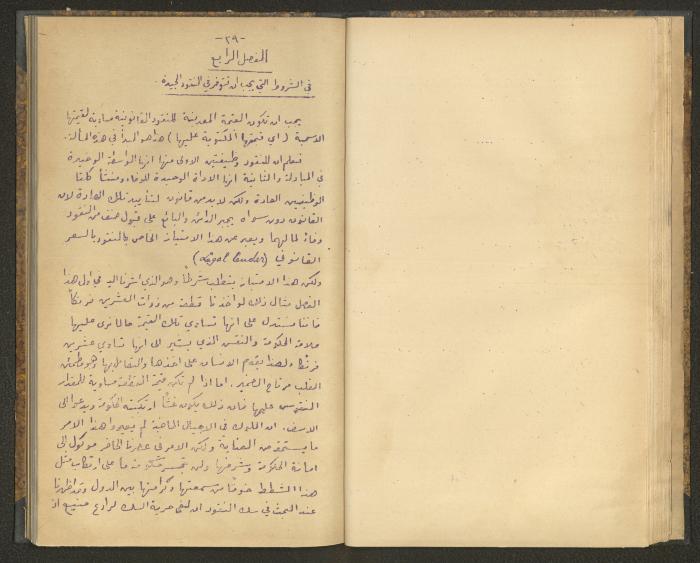 -٢٩-
الفصل الرابع
في الشروط التي يجب ان تتوفر في النقود الجيدة
يجب ان تكون القيمة المعدنية للنقود القانونية مساوية لقيمتها
الاسمية (اي قيمتها المكتوبة عليها) هذا هو المبدأ في هذه المسألة.
نعلم ان للنقود وظيفتين الاولى منها انها الواسطة الوحيدة
في المبادلة والثانية انها الاداة الوحيدة للوفاء ومنشأ كلتا
الوظيفتين العادة ولكن لا بد من قانون لتأييد تلك العادة لان
القانون دون سواه يجبر الدائن والبائع على قبول صنف من النقود
وفاءً لمالهما ويعبر عن هذا الامتياز الخاص بالنقود بالسعر
القانوني
ولكن هذا الامتياز يتطلب شرطاً وهو الذي اشرنا اليه في اول هذا
الفصل مثال ذلك لو اخذنا قطعة من ذوات العشرين فرنكاً
فاننا نستدل على انها تساوي تلك القيمة حالما نرى عليها
علامة الحكومة والنقش الذي يشير الى انها تساوي عشرين
فرنكا ولهذا يقدم الانسان على اخذها والتعامل بها وهو مطمئن
القلب مرتاح الضمير. اما اذا لم تكن قيمة القطعة مساوية للمقدار
المنقوش عليها فان ذلك يكون غشاً ارتكبته الحكومة ويدعو الى
الاسف. ان الملوك في الاجيال الماضية لم يعيروا هذا الامر
ما يستحقه من العناية ولكن الامر في عصرنا الحاضر موكول الى
امانة الحكومة وشرفها ولن تجسر حكومة ما على ارتكاب مثل
هذا الشطط خوفاً من سمعتها وكرامتها بين الدول وقد اظهرنا
عند البحث في سك النقود ان حرية السك رادع منيع اذ